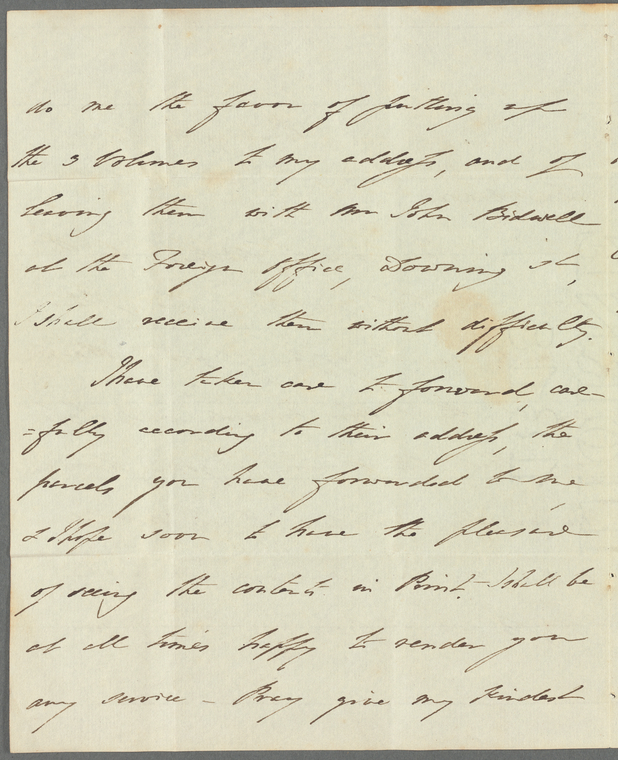 do me the favor of putting up
the 3 Volumes to my address, and of
leaving them with Mr John Bidwell
at the Foreign Office, Downing St,
I shall receive them without difficulty.
I have taken care to forward, care-
=fully according to their address, the
parcels you have forwarded to me
& I hope soon to have the pleasure
of seeing the contents in Print - I shall be
at all times happy to render you
any service - Pray give my kindest